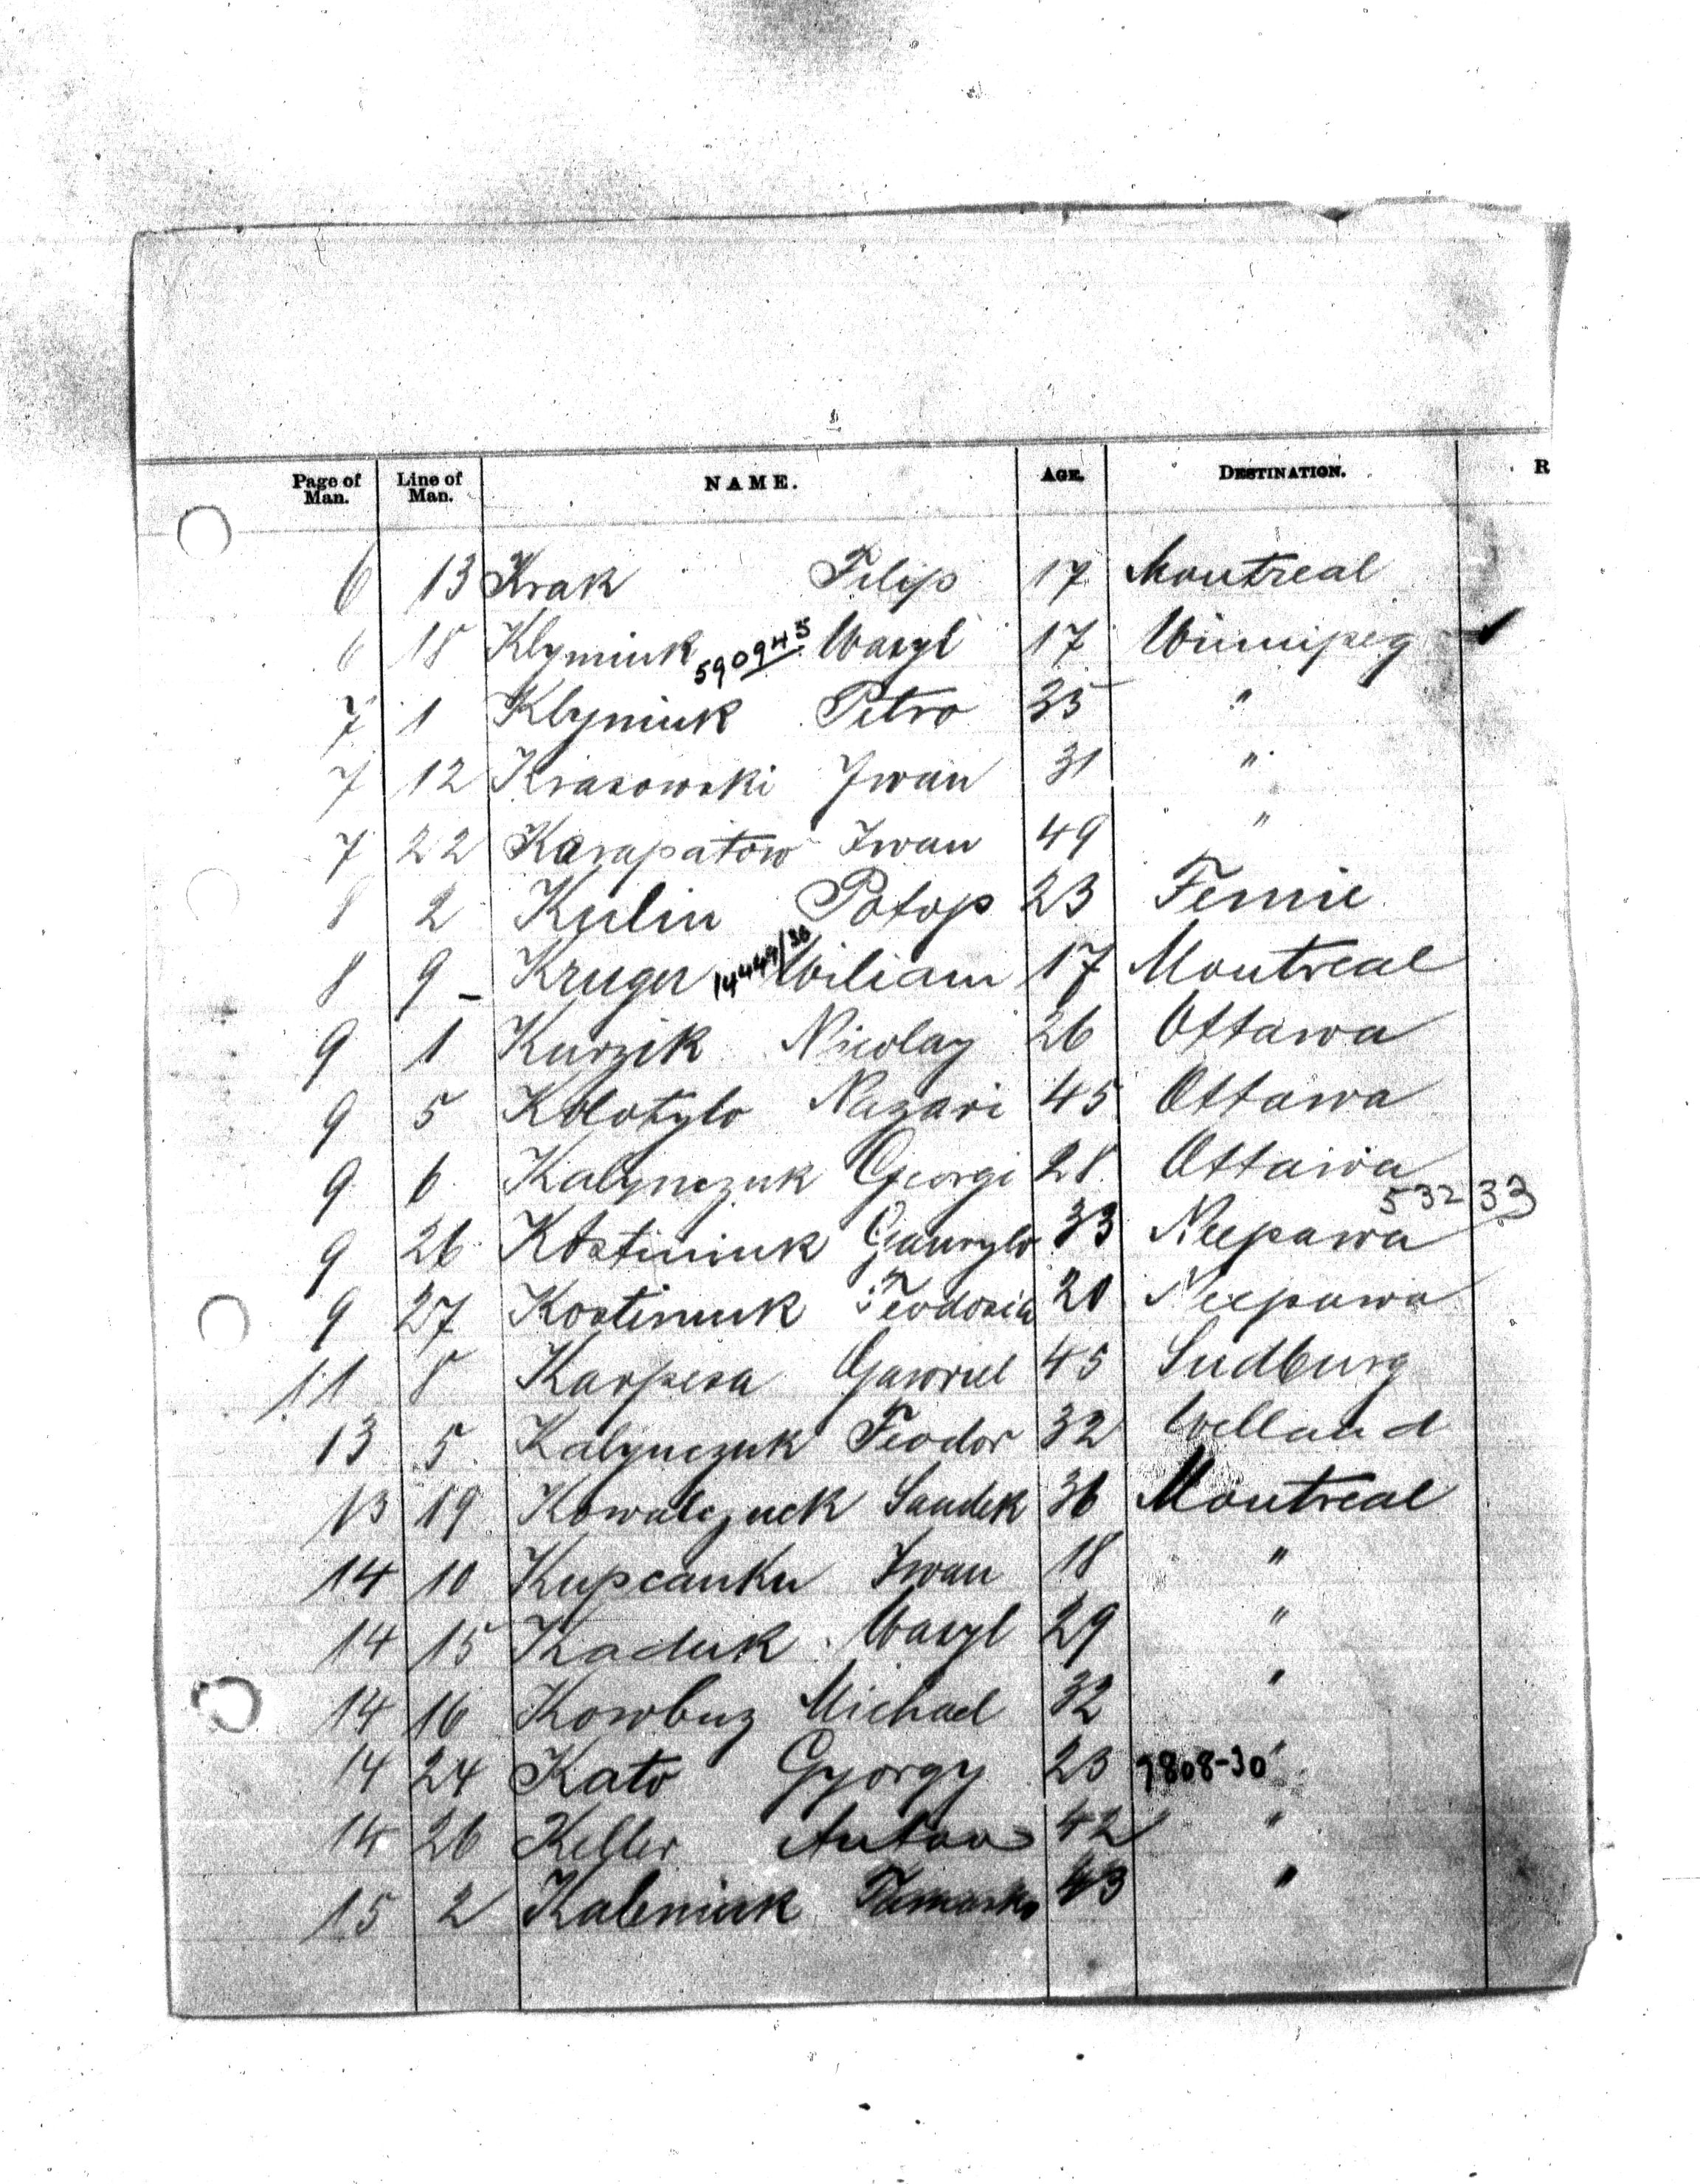 Page of Man. Line of Man. NAME. AGE. DESTINATION. R
6 13 Krak Filip 17 Montreal
6 18 Klymiuk 590945 Wasyl 17 Winnipeg ✓
7 1 Klymiuk Petro 35 "
7 12 Krasowski Iwan 31 "
7 22 Karapatow Iwan 49 "
8 2 Kulin Potop 23 Fernie
8 9 – Kruger 14449/30 Wiliam 17 Montreal
9 1 Kurzik Nicolay 26 Ottawa
9 5 Kolotylo Nazari 45 Ottawa
9 6 Kalynczuk Georgi 28 Ottawa
53233
9 26 Kostiniuk Gawrylo 33 Neepawa
9 27 Kostiniuk Teodosia 20 Neepawa
11 8 Karpesa Gawriel 45 Sudburg
13 5 Kalynczuk Feodor 32 Welland
13 19 Kowalczuck Sandek 36 Montreal
14 10 Kupcanku Iwan 18 "
14 15 Kaduk Wasyl 29 "
14 16 Kowbuz Michael 32 "
14 24 Kato Gyorgy 23 9808-30 "
14 26 Keller Anton 42 "
15 2 Kaleniuk 43 "